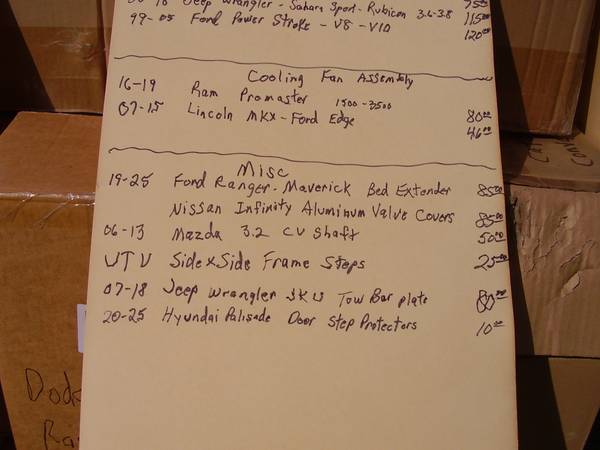 Jeep Wrangler - Sahara Sport - Rubicon 3.6-3.8 75⁰⁰
99-05 Ford Power Stroke - V8 - V10 115⁰⁰
120⁰⁰
Cooling Fan Assembly
16-19 Ram Promaster 1500-3500 80⁰⁰
07-15 Lincoln MKX - Ford Edge 46⁰⁰
Misc
19-25 Ford Ranger - Maverick Bed Extender 85⁰⁰
Nissan Infinity Aluminum Valve Covers 85⁰⁰
06-13 Mazda 3.2 CV Shaft 50⁰⁰
UTV Side x Side Frame Steps 25⁰⁰
07-18 Jeep Wrangler JKU Tow Bar plate 80⁰⁰
20-25 Hyundai Palisade Door Step Protectors 10⁰⁰